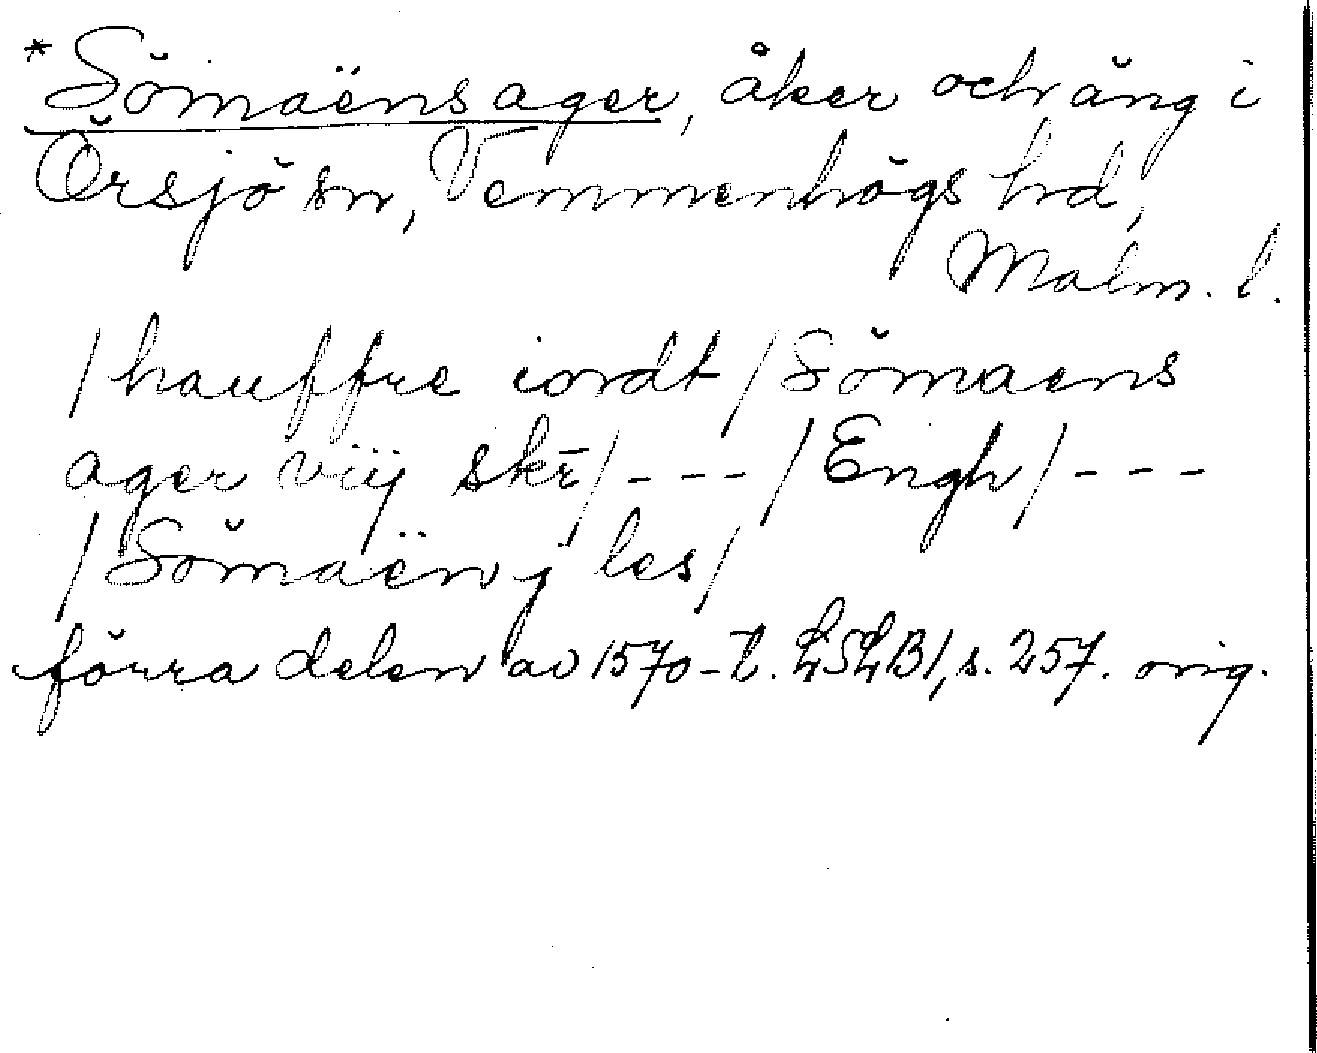 *Sömaënsager, åker och äng i
Örsjö sn, Vemmenhögs hd,
Malm. l.
/hauffre iordt/Sömaens
ager viÿ skr̄/---/Engh/---
/Sömaën j les/
förra delen av 1570-t. LSLB1, s. 257. orig.